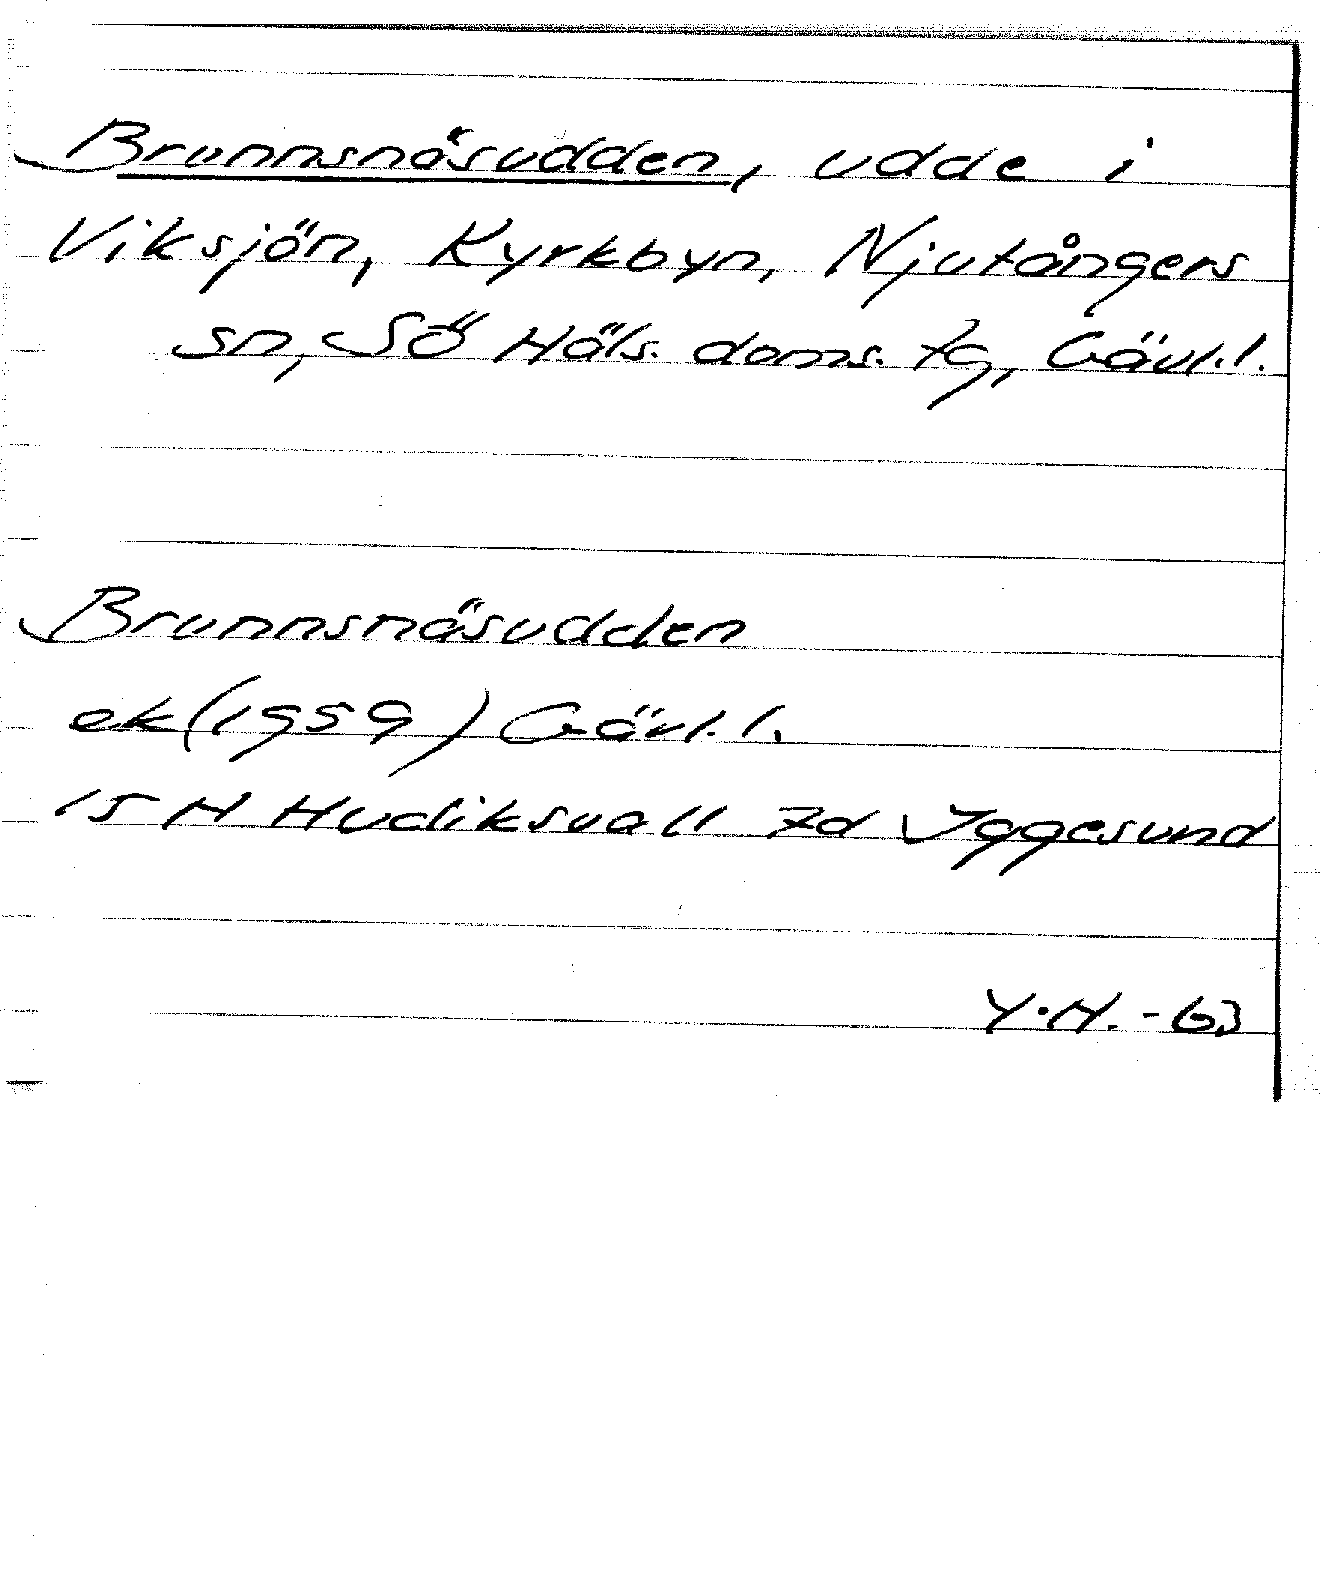 Brunnsnäsudden, udde i
Viksjön, Kyrkbyn, Njutångers
sn, Sö Häls. doms. tg, Gävl.l.
Brunnsnäsudden
ek (1959) Gävl.l.
15 H Hudiksvall 7d Iggesund
Y.H. -63